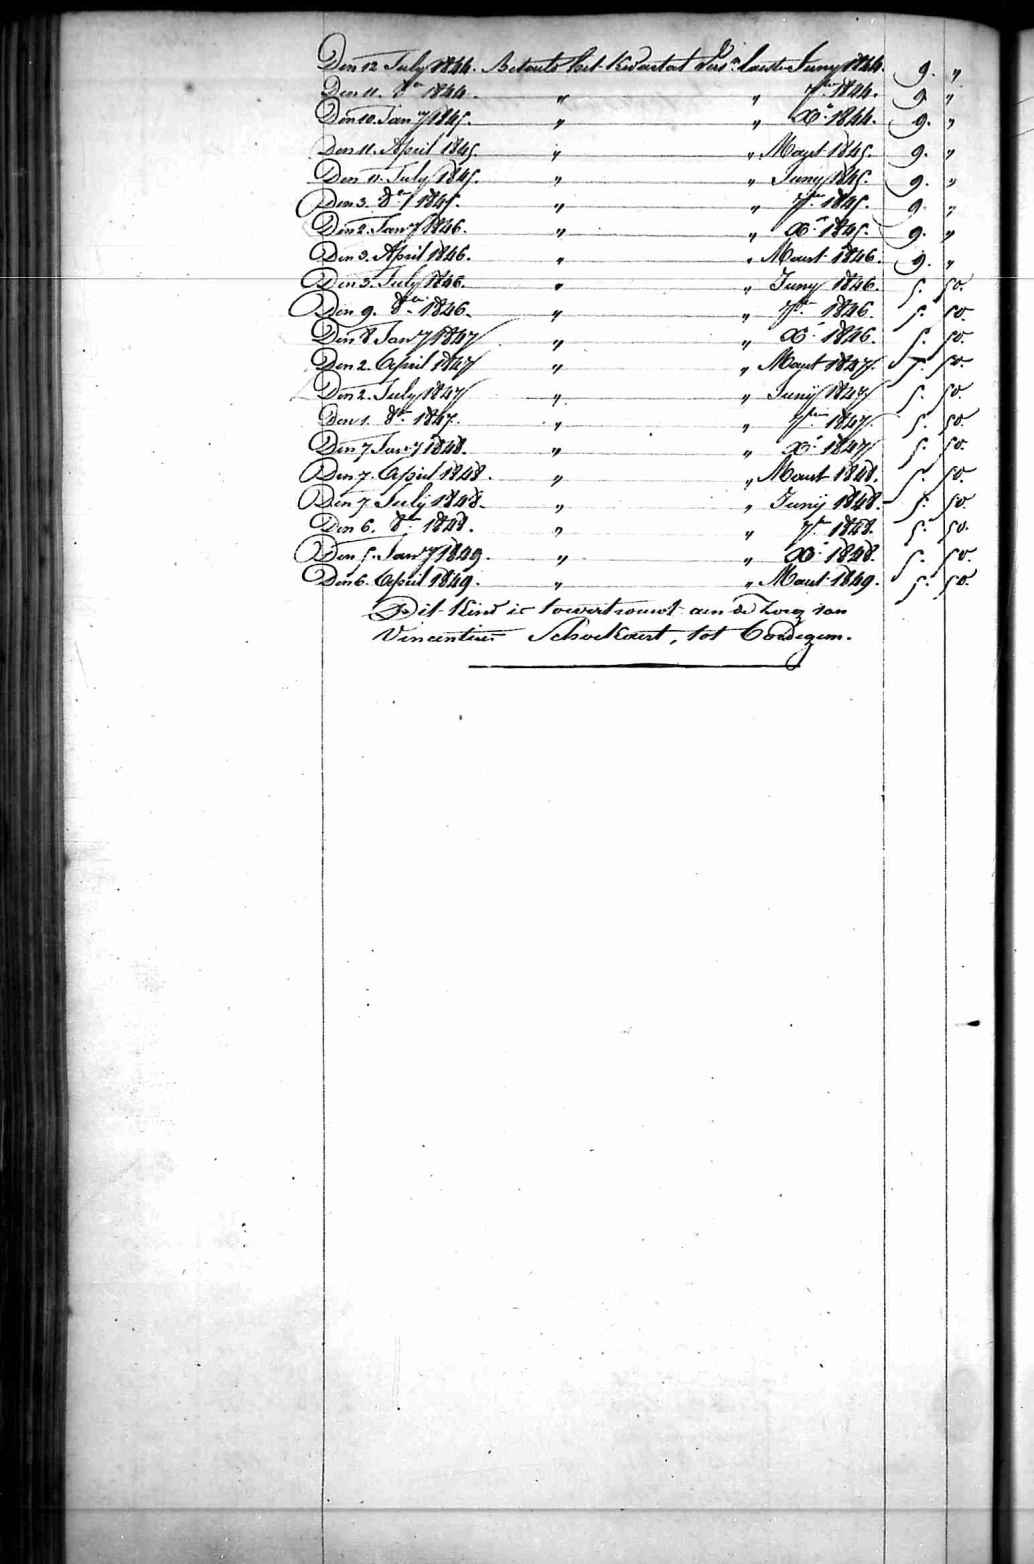 Den 12 July 1844. Betaald het kwartaal laatste Juny 1844. 9. "
Den 11. 8er 1844. " " 7ber 1844. 9 "
Den 10. Jany 1845. " " Xr 1844. 9. "
Den 11. April 1845. " " Maart 1845. 9. "
Den 11. July 1845. " " Juny 1845. 9. "
Den 3. 8er 1845. " " 7ber 1845. 9. "
Den 2. Jany 1846. " " Xr 1845. 9. "
Den 3. April 1846. " " Maart 1846. 9. "
Den 3. July 1846. " " Juny 1846. 5. 50.
Den 9. 8er 1846. " " 7ber 1846. 5. 50.
Den 8 Jany 1847 " " Xr 1846. 5. 50.
Den 2. April 1847 " " Maart 1847. 5. 50.
Den 2. July 1847 " " Junij 1847 5. 50.
Den 1. 8er 1847. " " 7ber 1847 5. 50.
Den 7 Jany 1848. " " Xr 1847 5. 50.
Den 7. April 1848. " " Maart 1848. 5. 50.
Den 7 Julij 1848. " " Junij 1848. 5. 50.
Den 6. 8er 1848. " " 7ber 1848. 5. 50.
Den 5. Jany 1849. " " Xr 1848. 5. 50.
Den 6. April 1849. " " Maart 1849. 5. 50.
Dit kind is toevertrouwt aan de zorg van
Vincentius Schockaert, tot Oordegem.